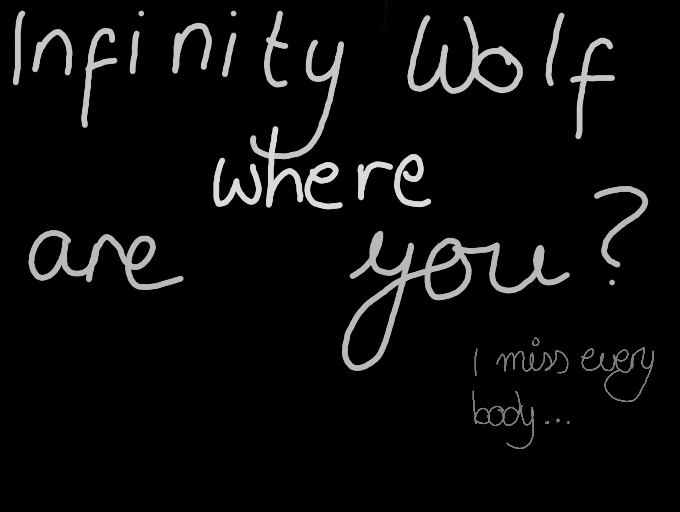 Infinity Wolf
where
are you?
I miss every
body...